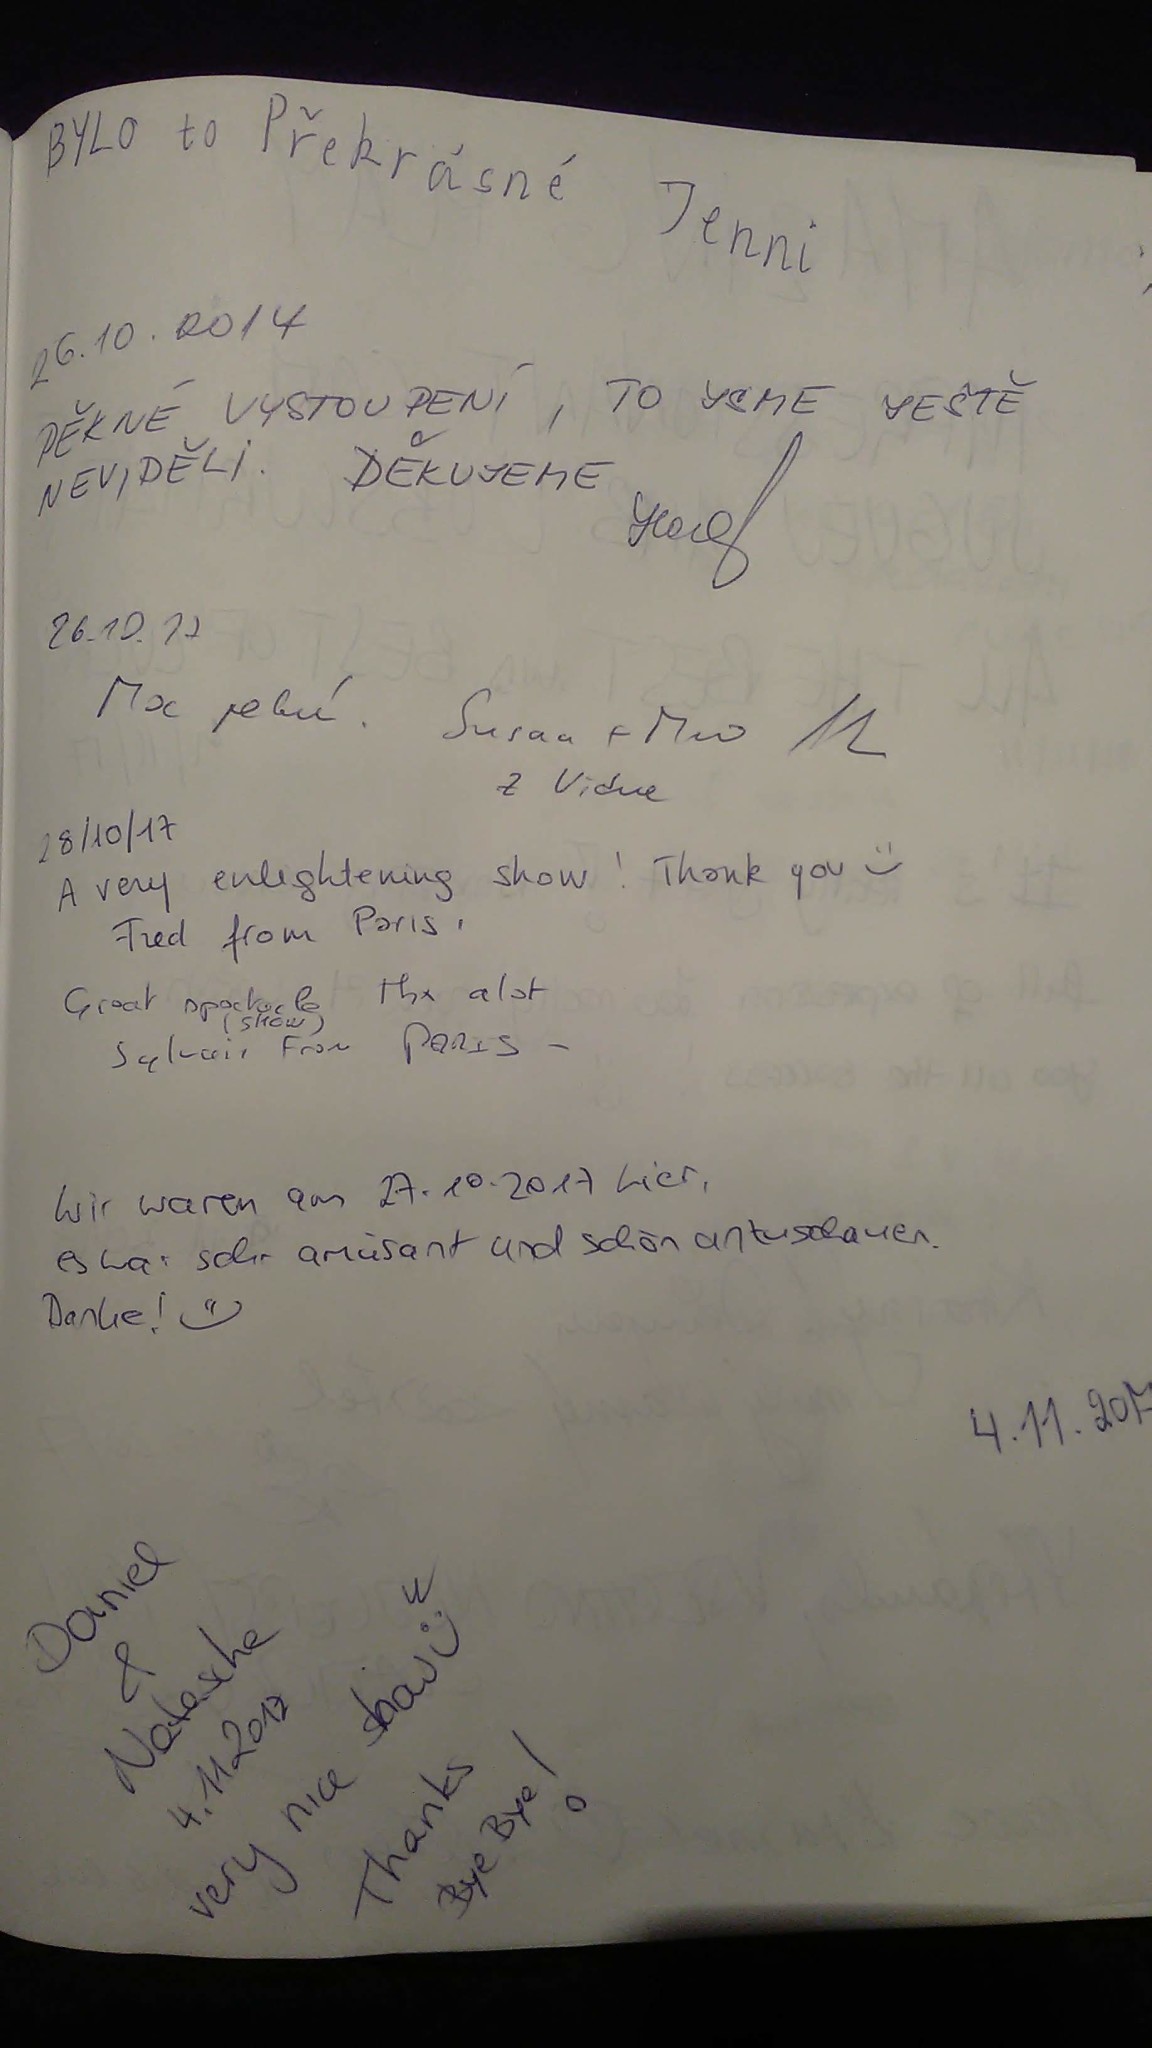 BYLO to Překrásné Jenni
26.10.2014
PĚKNÉ VYSTOUPENÍ, TO JSME JEŠTĚ
NEVIDĚLI. DĚKUJEME
26.10.17
Susan + 
z Vídne
28/10/17
A very enlightening show! Thank you :)
Fred from Paris.
Great spectacle thx alot
(show)
Sylvain From PARIS -
Wir waren am 27.10.2017 hier,
es war sehr amüsant und schön anzuschauen.
Danke! :)
4.11.2017
Daniel
&
Natascha
4.11.2017
very nice show :)
Thanks
Bye Bye!